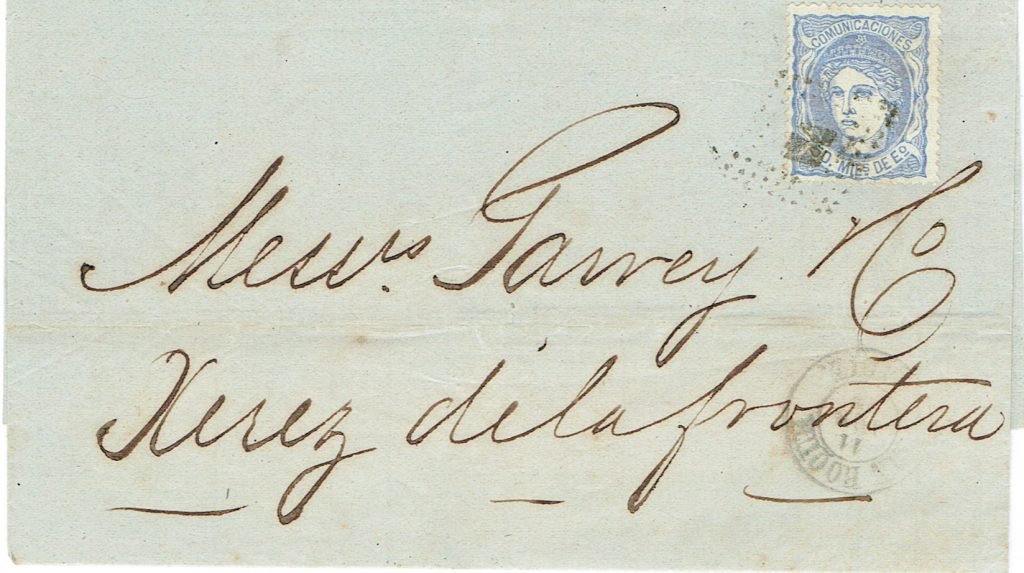 COMUNICACIONES
MIL.s DE E.o
Mess.rs Garvey & Co
Xerez de la frontera
11